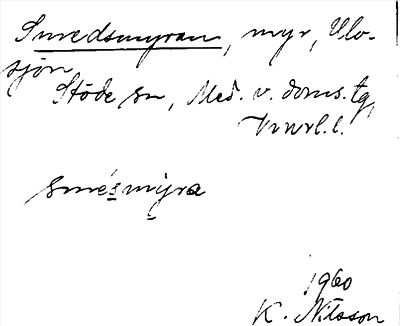 Smedsmyran, myr, Ulo-
sjön
Stöde sn, Med. v. doms. tg,
Vnrl. l.
smésmyra
1960
K. Nilsson